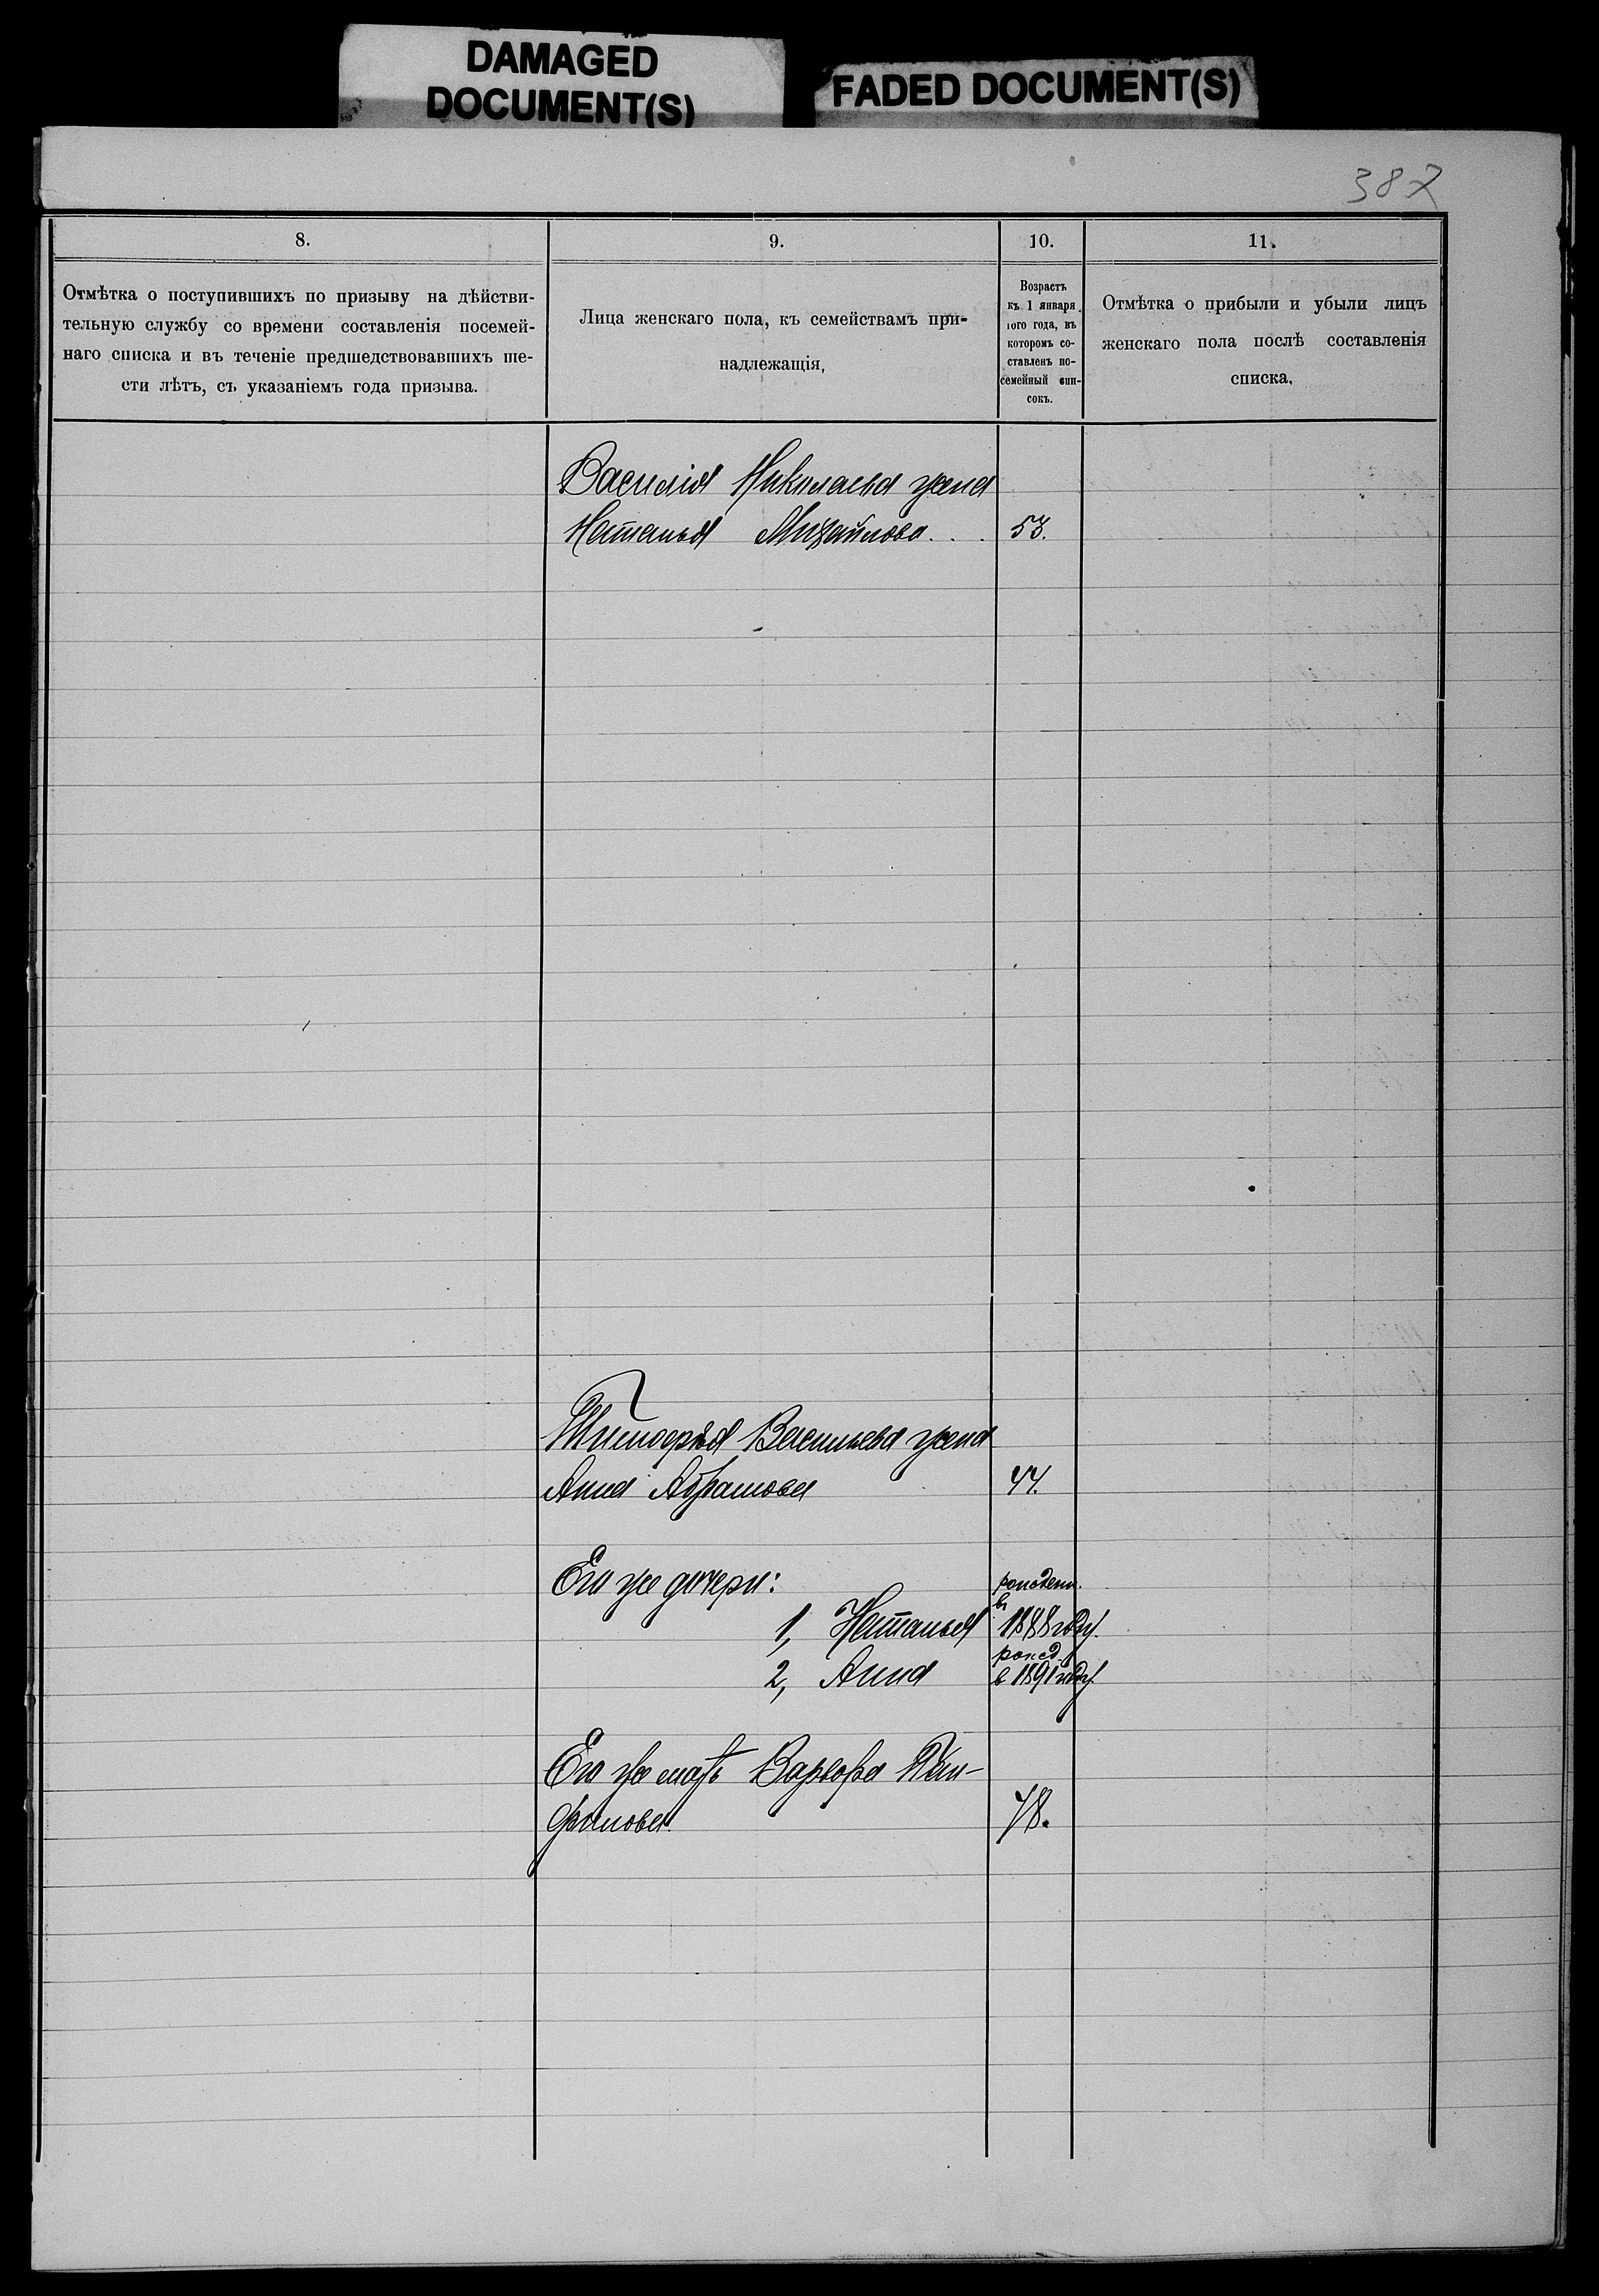 DAMAGED
DOCUMENT(S)
FADED DOCUMENT(S)
387
8.
Отмѣтка о поступившихъ по призыву на дѣйстви-
тельную службу со времени составленія посемей-
наго списка и въ теченіе предшедствовавшихъ ше-
сти лѣтъ, съ указаніемъ года призыва.
9.
Лица женскаго пола, къ семействамъ при-
надлежащія,
10.
Возрастъ
къ 1 января
того года, въ
которомъ со-
ставленъ по-
семейный спи-
сокъ.
11.
Отмѣтка о прибыли и убыли лицъ
женскаго пола послѣ составленія
списка.
Василія Николаева жена
Наталья Михайлова . . . 53.
Тимофея Васильева жена
Анна Абрамова 44.
Его же дочери:
1, Наталья рожден. в 1888 году.
2, Анна рожд. в 1891 году.
Его же мать Варвара Пан-
филова 78.